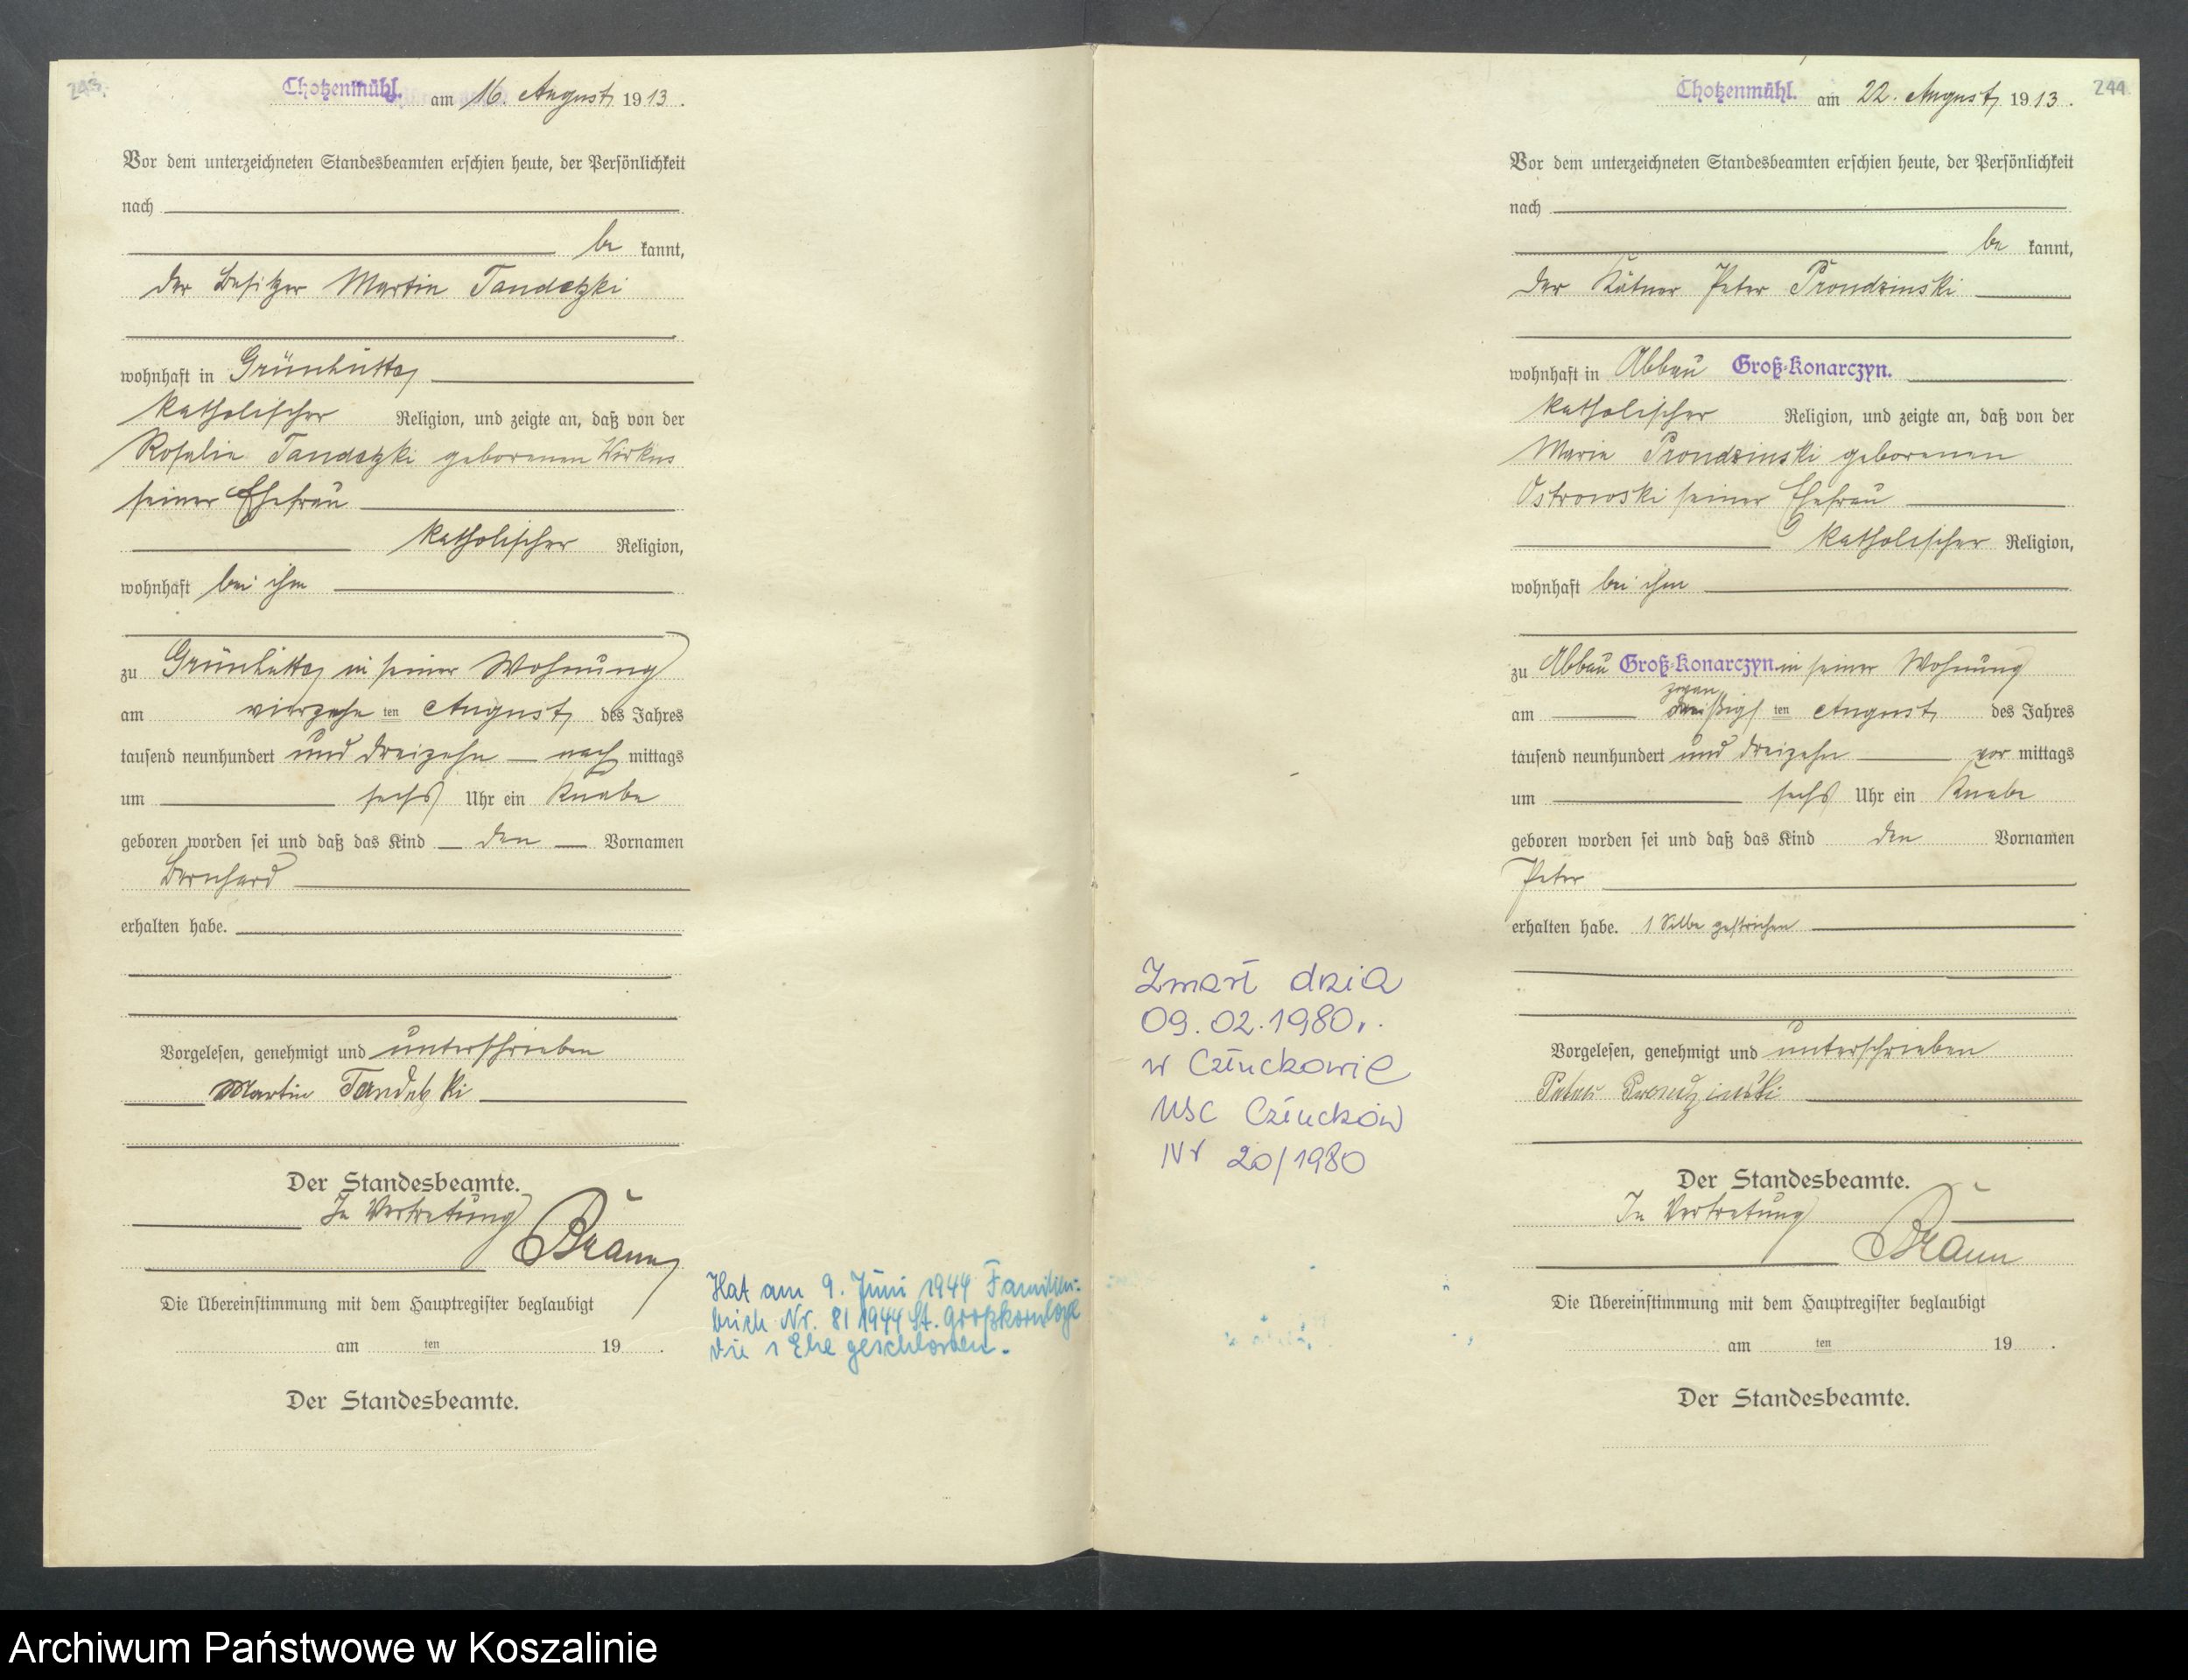 243.
Chotzenmühl. am 16. August 1913.
Vor dem unterzeichneten Standesbeamten erschien heute, der Persönlichkeit
nach
be kannt,
der Besitzer Martin Tandetzki
wohnhaft in Grünhütte
katholischer Religion, und zeigte an, daß von der
Rosalie Tandetzki geborenen Wirkus
seiner Ehefrau
katholischer Religion,
wohnhaft bei ihm
zu Grünhütte in seiner Wohnung
am vierzehn ten August des Jahres
tausend neunhundert und dreizehn nach mittags
um sechs Uhr ein Knabe
geboren worden sei und daß das Kind den Vornamen
Bernhard
erhalten habe.
Vorgelesen, genehmigt und unterschrieben
Martin Tandetzki
Der Standesbeamte.
In Vertretung
Braun
Die Übereinstimmung mit dem Hauptregister beglaubigt
am ten 19 .
Der Standesbeamte.
Hat am 9. Juni 1944 Familien-
buch Nr. 8/1944 St.
die 1 Ehe geschlossen.
244
Chotzenmühl. am 22. August 1913.
Vor dem unterzeichneten Standesbeamten erschien heute, der Persönlichkeit
nach
be kannt,
der Kätner Peter Prondzinski
wohnhaft in Abbau Groß-Konarczyn.
katholischer Religion, und zeigte an, daß von der
Maria Prondzinski geborenen
Ostrowski seiner Ehefrau
katholischer Religion,
wohnhaft bei ihm
zu Abbau Groß-Konarczyn in seiner Wohnung
zwan
am dreißigs ten August des Jahres
tausend neunhundert und dreizehn vor mittags
um sechs Uhr ein Knabe
geboren worden sei und daß das Kind den Vornamen
Peter
erhalten habe. 1 Silbe gestrichen
Vorgelesen, genehmigt und unterschrieben
Peter Prondzinski
Der Standesbeamte.
In Vertretung
Braun
Die Übereinstimmung mit dem Hauptregister beglaubigt
am ten 19 .
Der Standesbeamte.
Zmarł dnia
09.02.1980r.
w Człuchowie
USC Człuchów
Nr 20/1980
Archiwum Państwowe w Koszalinie